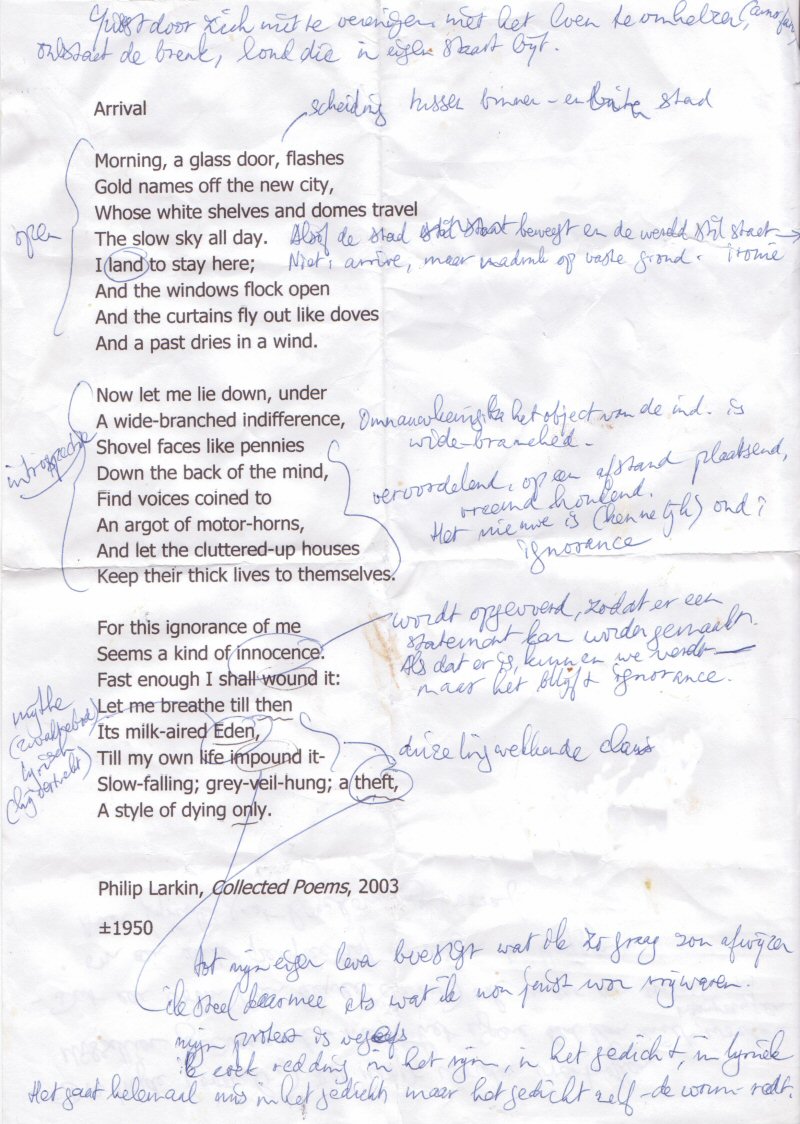 Juist door zich niet te verenigen met het leven te omhelzen,
ontstaat de breuk, hond die in eigen staart bijt.
Arrival
scheiding tussen binnen- en buiten stad
Morning, a glass door, flashes
Gold names off the new city,
Whose white shelves and domes travel
The slow sky all day. Alsof de stad beweegt en de wereld stil staat
open
I land to stay here; Niet: arrive, maar nadruk op vaste grond. ironie
And the windows flock open
And the curtains fly out like doves
And a past dries in a wind.
Now let me lie down, under
A wide-branched indifference, Omnauwkeurig het object van de ind. is
wide-branched.
introspectie
Shovel faces like pennies
Down the back of the mind,
Find voices coined to
An argot of motor-horns,
And let the cluttered-up houses
Keep their thick lives to themselves.
veroordelend, op een afstand plaatsend,
vreemd houdend.
Het nieuwe is (kennelijk) oud:
ignorance
For this ignorance of me
Seems a kind of innocence.
Fast enough I shall wound it:
Let me breathe till then
Its milk-aired Eden,
Till my own life impound it-
Slow-falling; grey-veil-hung; a theft,
A style of dying only.
wordt opgevoerd, zodat er een
statement kan worden gemaakt.
Als dat er is, kunnen we verder
maar het blijft ignorance.
mythe
lyrisch
duizelingwekkende
Philip Larkin, Collected Poems, 2003
±1950
tot mijn eigen leven bevestigt wat ik zo graag zou afwijzen
ik steel daarmee iets wat ik nou juist wou vrijwaren.
mijn protest is vergeefs
ik zoek redding in het rijm, in het gedicht, in lyriek
Het gaat helemaal mis in het gedicht maar het gedicht zelf - de vorm - redt.